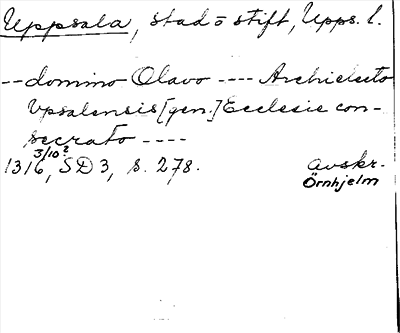 Uppsala, stad o stift, Upps. l.
-- domino Olavo ---- Archielecto
Vpsalensis [gen.] Ecclesie con-
secrato ----
3/10?
1316, SD 3, s. 278.
avskr.
Örnhjelm